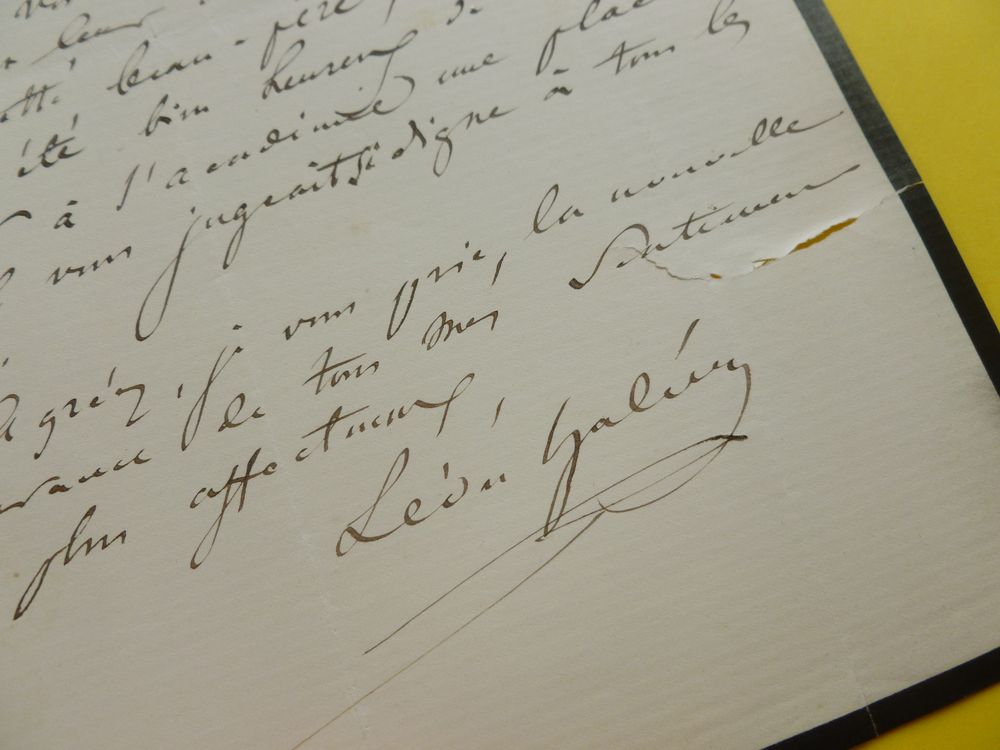 leur
beau-père,
été bien heureux de
à l'académie une place
vous jugeait si digne à tous les
Agréez, je vous prie, la nouvelle
de tous mes sentimens
plus affectueux,
Léon Halévy